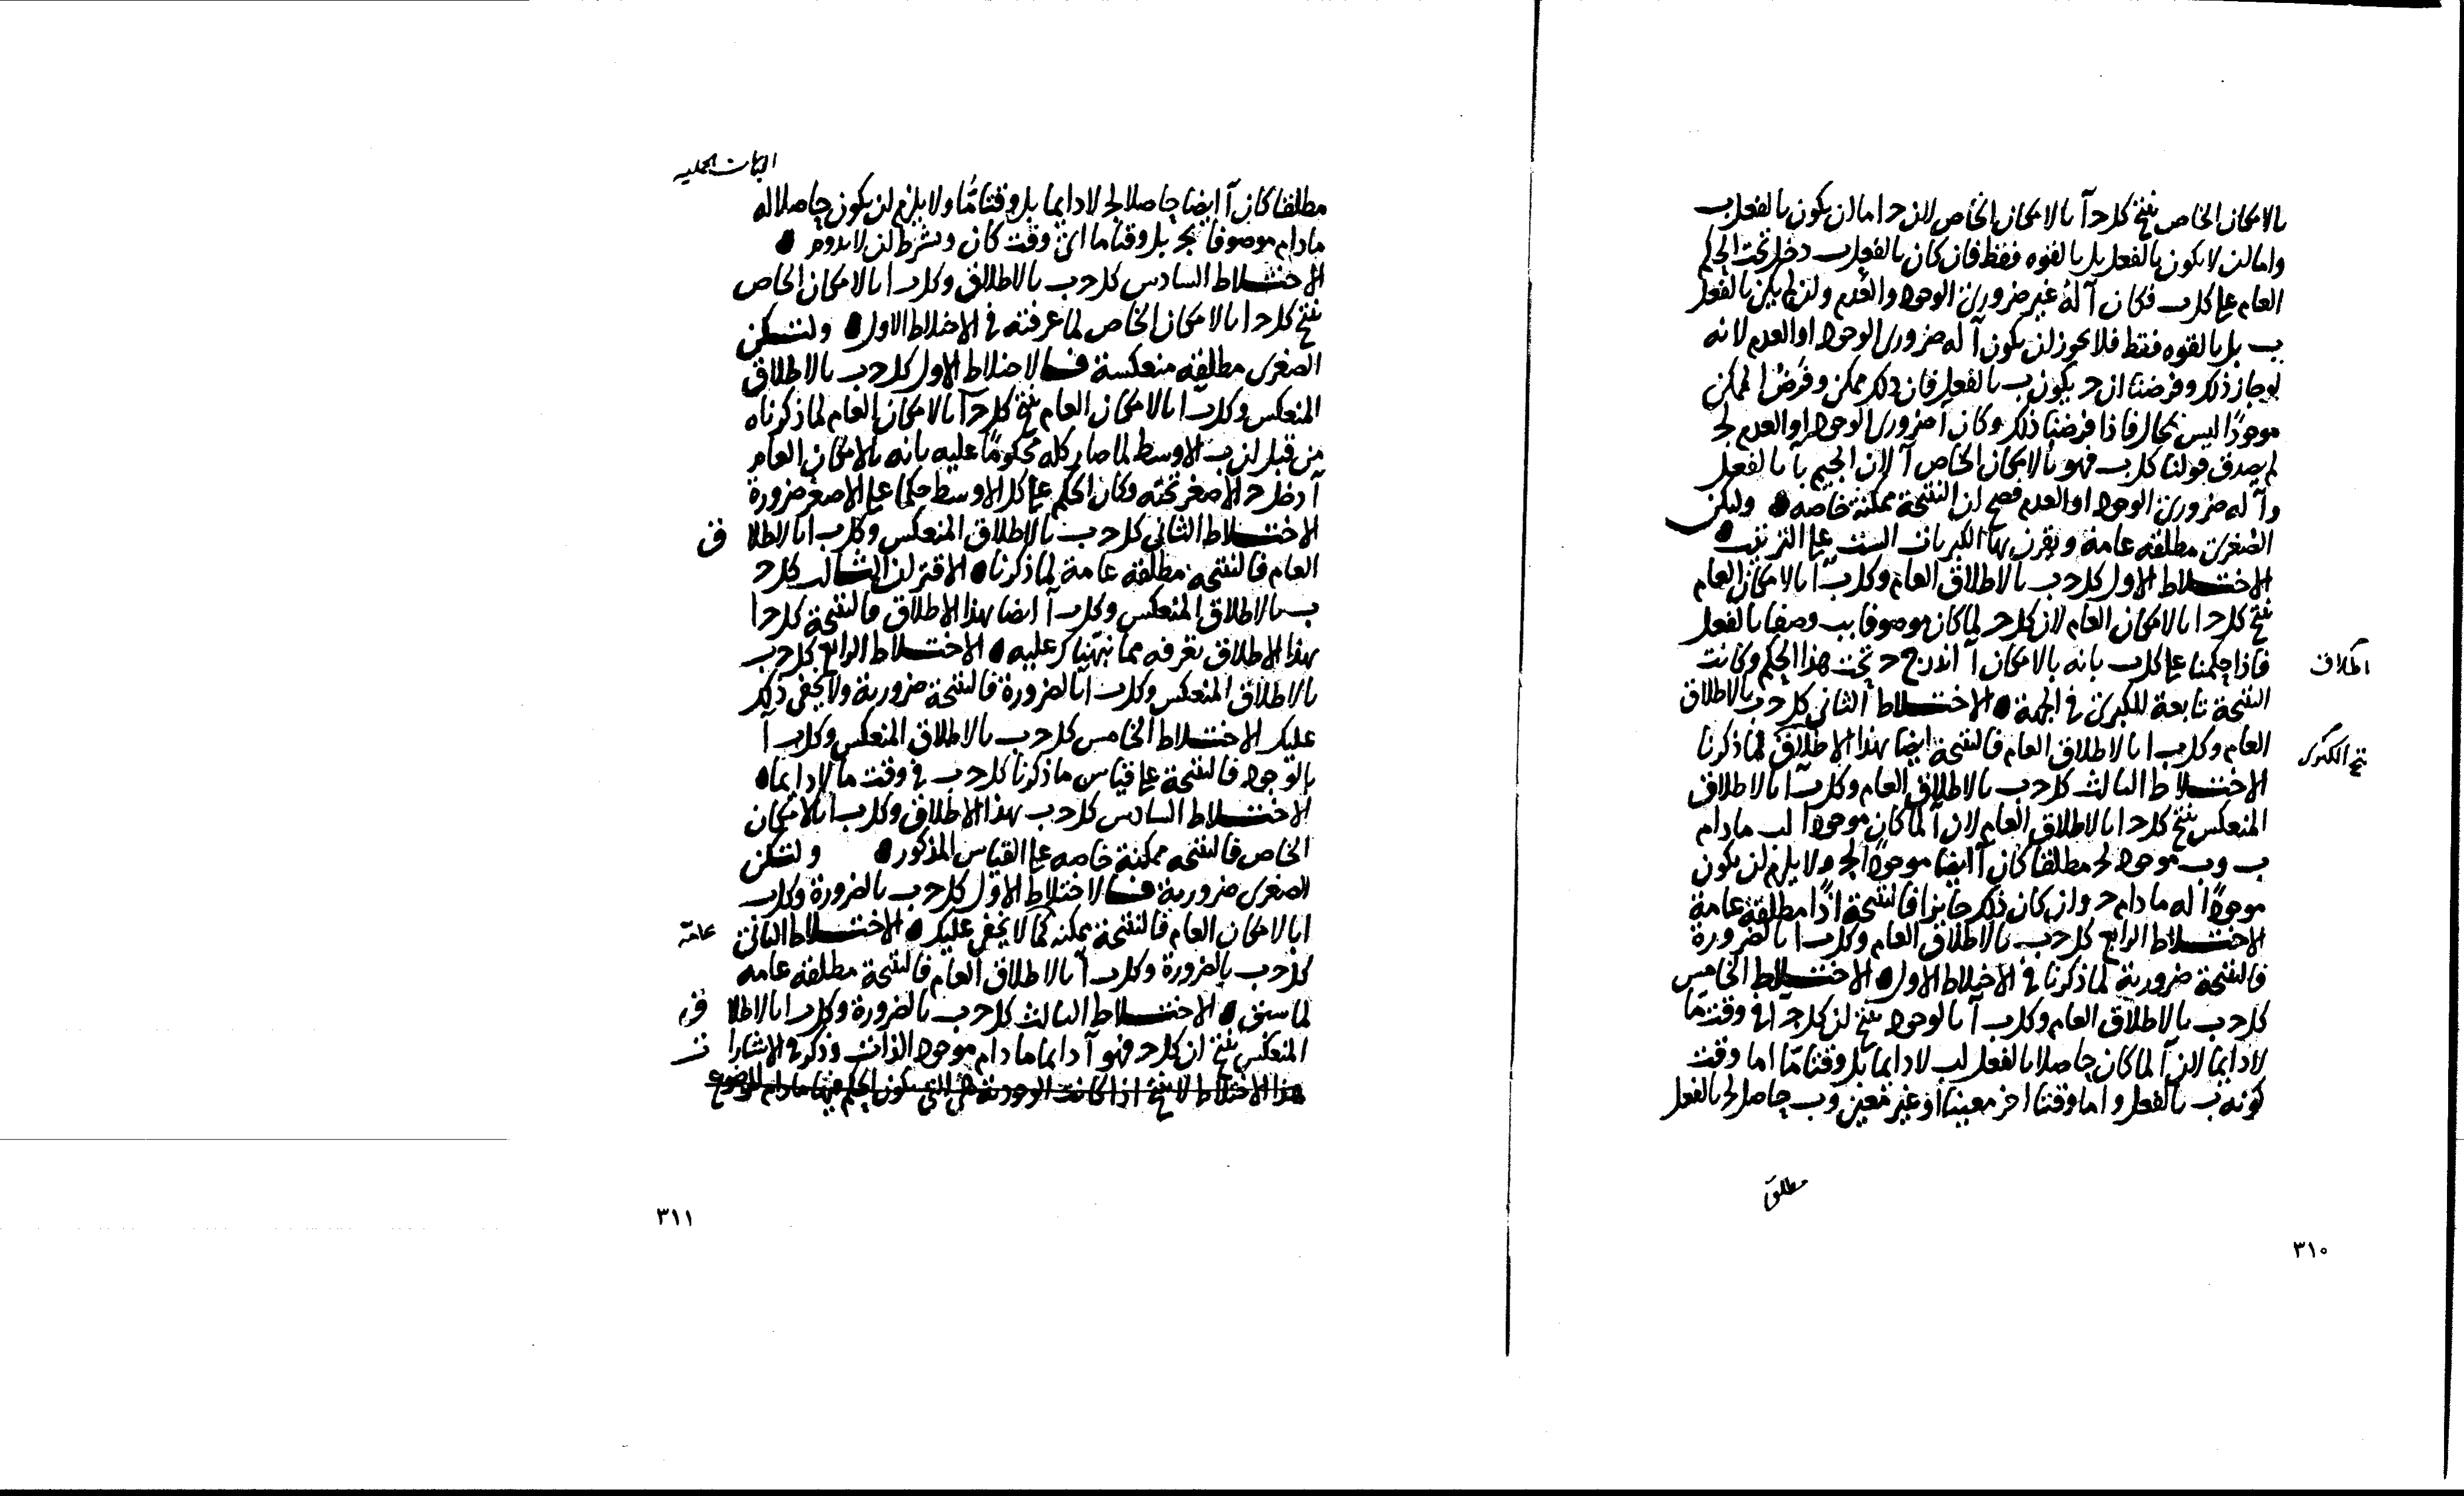 بالامكان الخاص ينتج كل ح آ بالامكان الخاص لان ح اما ان يكون بالفعل ب
واما ان لا يكون بالفعل بل بالقوه فقط فان كان بالفعل ب دخل تحت الحكم
العام على كل ب فكان آ له غير ضرورى الوجود والعدم وان لم يكن بالفعل
ب بل بالقوه فقط فلا يجوز ان يكون آ له ضرورى الوجود او العدم لانه
لو جاز ذلك وفرضنا ان ح يكون ب بالفعل فان ذلك ممكن وفرض الممكن
موجودًا ليس بمحال فاذا فرضنا ذلك وكان آ ضرورى الوجود او العدم لح
لم يصدق قولنا كل ب فهو بالامكان الخاص آ لان الجيم بآ بالفعل
وآ له ضرورى الوجود او العدم فصح ان النتيجة ممكنة خاصه ولتكن
الصغرى مطلقه عامة ويقرن بها الكبريات الست على الترتيب
الاختلاط الاول كل ح ب بالاطلاق العام وكل ب آ بالامكان العام
ينتج كل ح ا بالامكان العام لان كل ح لما كان موصوفا بب وصفا بالفعل
فاذا حكمنا على كل ب بانه بالامكان آ اندرج ح تحت هذا الحكم وكانت
اطلاق
النتيجة تابعة للكبرى فى الجهة الاختلاط الثانى كل ح ب بالاطلاق
العام وكل ب ا بالاطلاق العام فالنتيجة ايضا بهذا الاطلاق لما ذكرنا
الكبرى
الاختلاط الثالث كل ح ب بالاطلاق العام وكل ب آ بالاطلاق
المنعكس ينتج كل ح ا بالاطلاق العام لان آ لما كان موجودا لب ما دام
ب وب موجود لح مطلقا كان آ ايضا موجودًا لح ولا يلزم ان يكون
موجودًا له ما دام ح وان كان ذلك جايزا فالنتيجة اذًا مطلقة عامة
الاختلاط الرابع كل ح ب بالاطلاق العام وكل ب ا بالضرورة
فالنتيجة ضرورية لما ذكرنا فى الاختلاط الاول الاختلاط الخامس
كل ح ب بالاطلاق العام وكل ب آ بالوجود ينتج ان كل ح آ فى وقت مّا
لا دايما لان آ لما كان حاصلا بالفعل لب لا دايما بل وقتا مّا اما وقت
كونه ب بالفعل واما وقتا اخر معينا او غير معين وب حاصل لح بالفعل
مطلق
٣١٠
الحمليه
مطلقا كان آ ايضا حاصلا لح لا دايما بل وقتا مّا ولا يلزم ان يكون حاصلا له
ما دام موصوفا بح بل وقتا ما اىّ وقت كان وبشرط ان لا يدوم
الاختلاط السادس كل ح ب بالاطلاق وكل ب ا بالامكان الخاص
ينتج كل ح ا بالامكان الخاص لما عرفته فى الاختلاط الاول ولتكن
الصغرى مطلقه منعكسة فالاختلاط الاول كل ح ب بالاطلاق
المنعكس وكل ب ا بالامكان العام ينتج كل ح آ بالامكان العام لما ذكرناه
من قبل ان ب الاوسط لما صار كله محكومًا عليه بانه بالامكان العام
آ دخل ح الاصغر تحته وكان الحكم على كل الاوسط حكما على الاصغر ضرورة
الاختلاط الثانى كل ح ب بالاطلاق المنعكس وكل ب ا بالاطلاق
العام فالنتيجة مطلقه عامة لما ذكرنا الاقتران الثالث كل ح
ب بالاطلاق المنعكس وكل ب آ ايضا بهذا الاطلاق فالنتيجة كل ح ا
بهذا الاطلاق تعرفه مما نبهناك عليه الاختلاط الرابع كل ح ب
بالاطلاق المنعكس وكل ب ا بالضرورة فالنتيجة ضرورية ولا يخفى ذلك
عليك الاختلاط الخامس كل ح ب بالاطلاق المنعكس وكل ب آ
بالوجود فالنتيجة على قياس ما ذكرنا كل ح ب فى وقت ما لا دايما
الاختلاط السادس كل ح ب بهذا الاطلاق وكل ب ا بالامكان
الخاص فالنتيجه ممكنة خاصه على القياس المذكور ولتكن
الصغرى ضرورية فالاختلاط الاول كل ح ب بالضرورة وكل ب
ا بالامكان العام فالنتيجة ممكنه كما لا يخفى عليك الاختلاط الثانى
عامّه
كل ح ب بالضرورة وكل ب آ بالاطلاق العام فالنتيجة مطلقه عامه
لما سبق الاختلاط الثالث كل ح ب بالضرورة وكل ب ا بالاطلاق
المنعكس ينتج ان كل ح فهو آ دايما ما دام موجود الذات وذكر فى الاشارات
هذا الاختلاط لا ينتج اذا كانت الوجودية هى التى يكون الحكم فيها ما دام الموضوع
٣١١